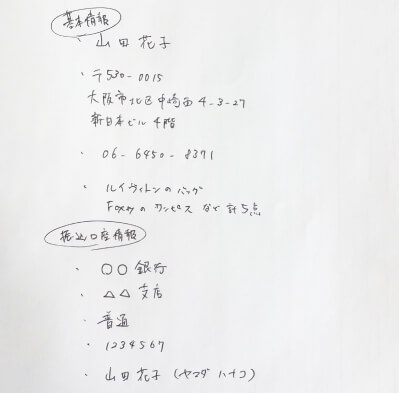 基本情報
・山田花子
・〒530-0015
大阪市北区中崎西4-3-27
新日本ビル4階
・06-6450-8371
・ルイヴィトンのバッグ
Foxeyのワンピース など計5点
振込口座情報
・〇〇銀行
・△△支店
・普通
・1234567
・山田花子(ヤマダハナコ)